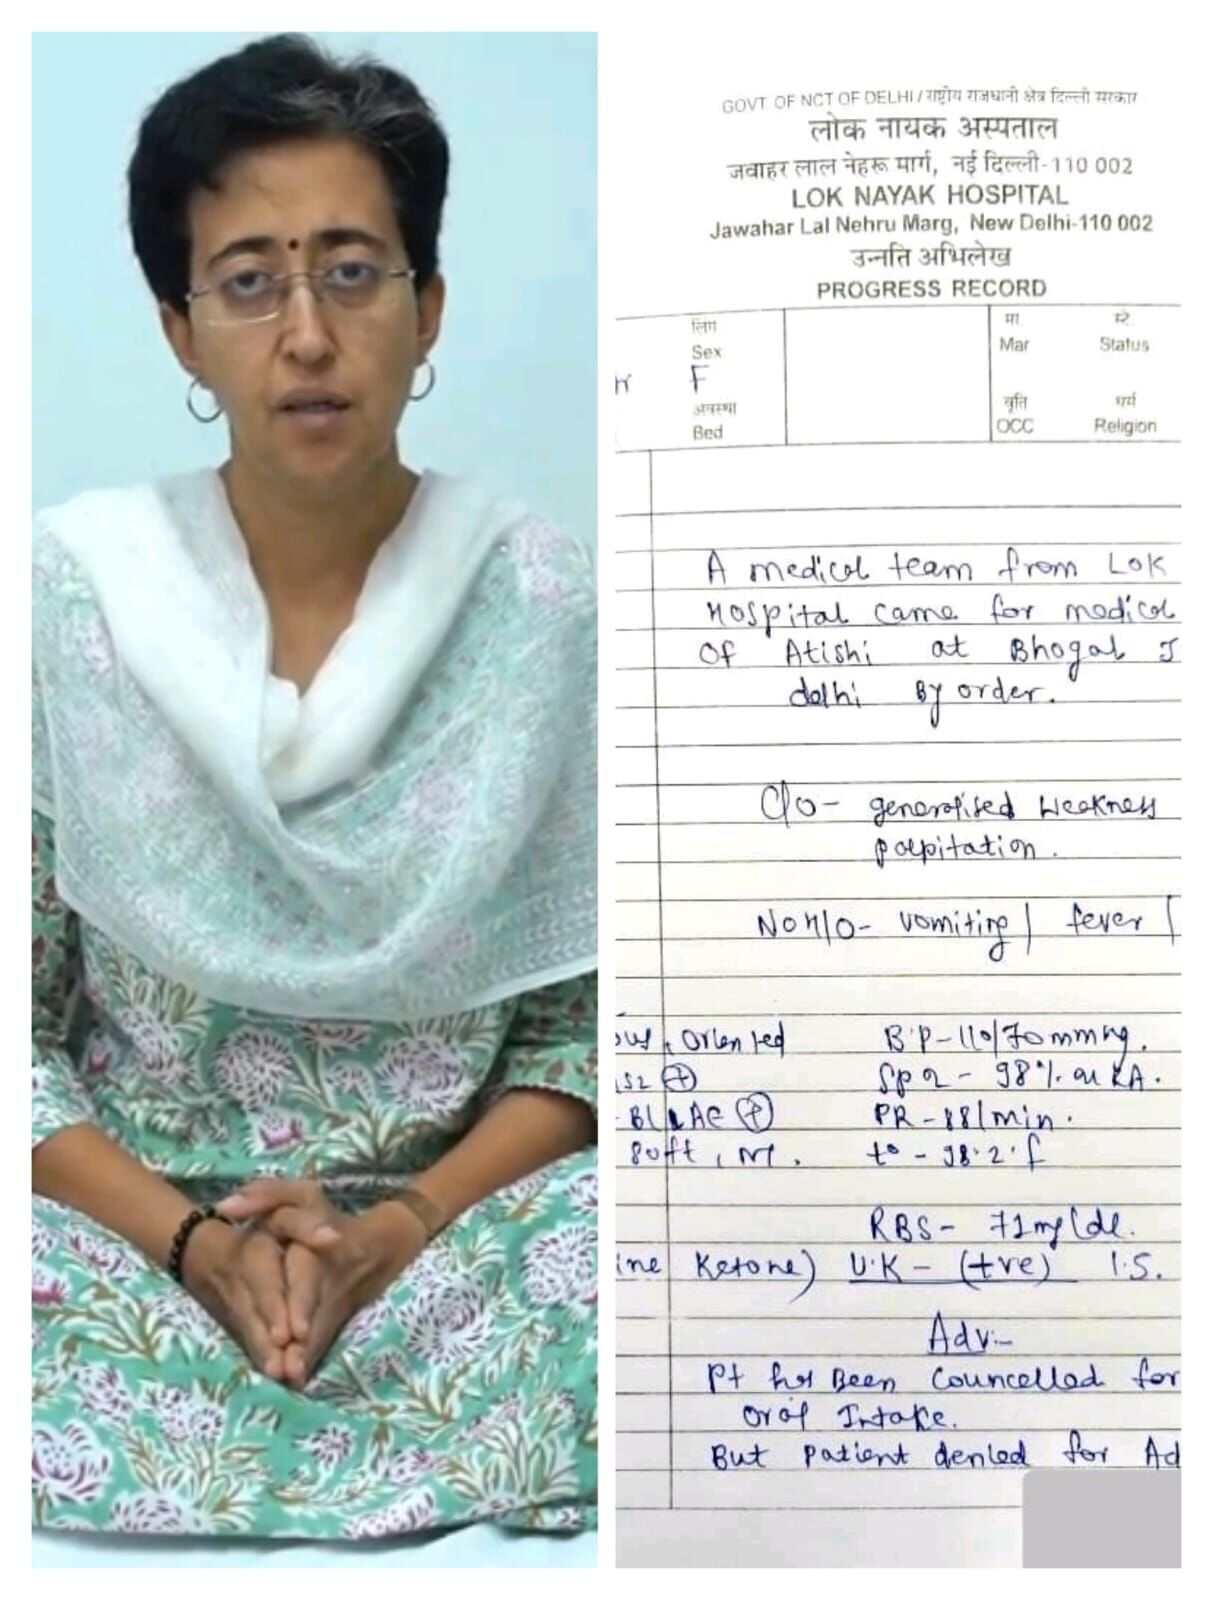 GOVT OF NCT OF DELHI / राष्ट्रीय राजधानी क्षेत्र दिल्ली सरकार
लोक नायक अस्पताल
जवाहर लाल नेहरू मार्ग, नई दिल्ली-110 002
LOK NAYAK HOSPITAL
Jawahar Lal Nehru Marg, New Delhi-110 002
उन्नति अभिलेख
PROGRESS RECORD
लिंग मा. स्टे.
Sex Mar Status
F
अवस्था वृति धर्म
Bed OCC Religion
A medical team from Lok
Hospital came for medical
of Atishi at Bhogal J
delhi By order.
C/o- generalised weakness
palpitation.
No H/O- vomiting / fever /
oriented B.P-110/70mmHg.
S2 (+) Sp O2 - 98% on RA.
BL AE (+) PR-88/min.
Soft, NT. t° - 98.2°f
RBS- 71mg/dl.
ine Ketone) U.K - (+ve) I.S.
Adv:-
Pt has Been Councelled for
oral Intake.
But patient denied for Ad